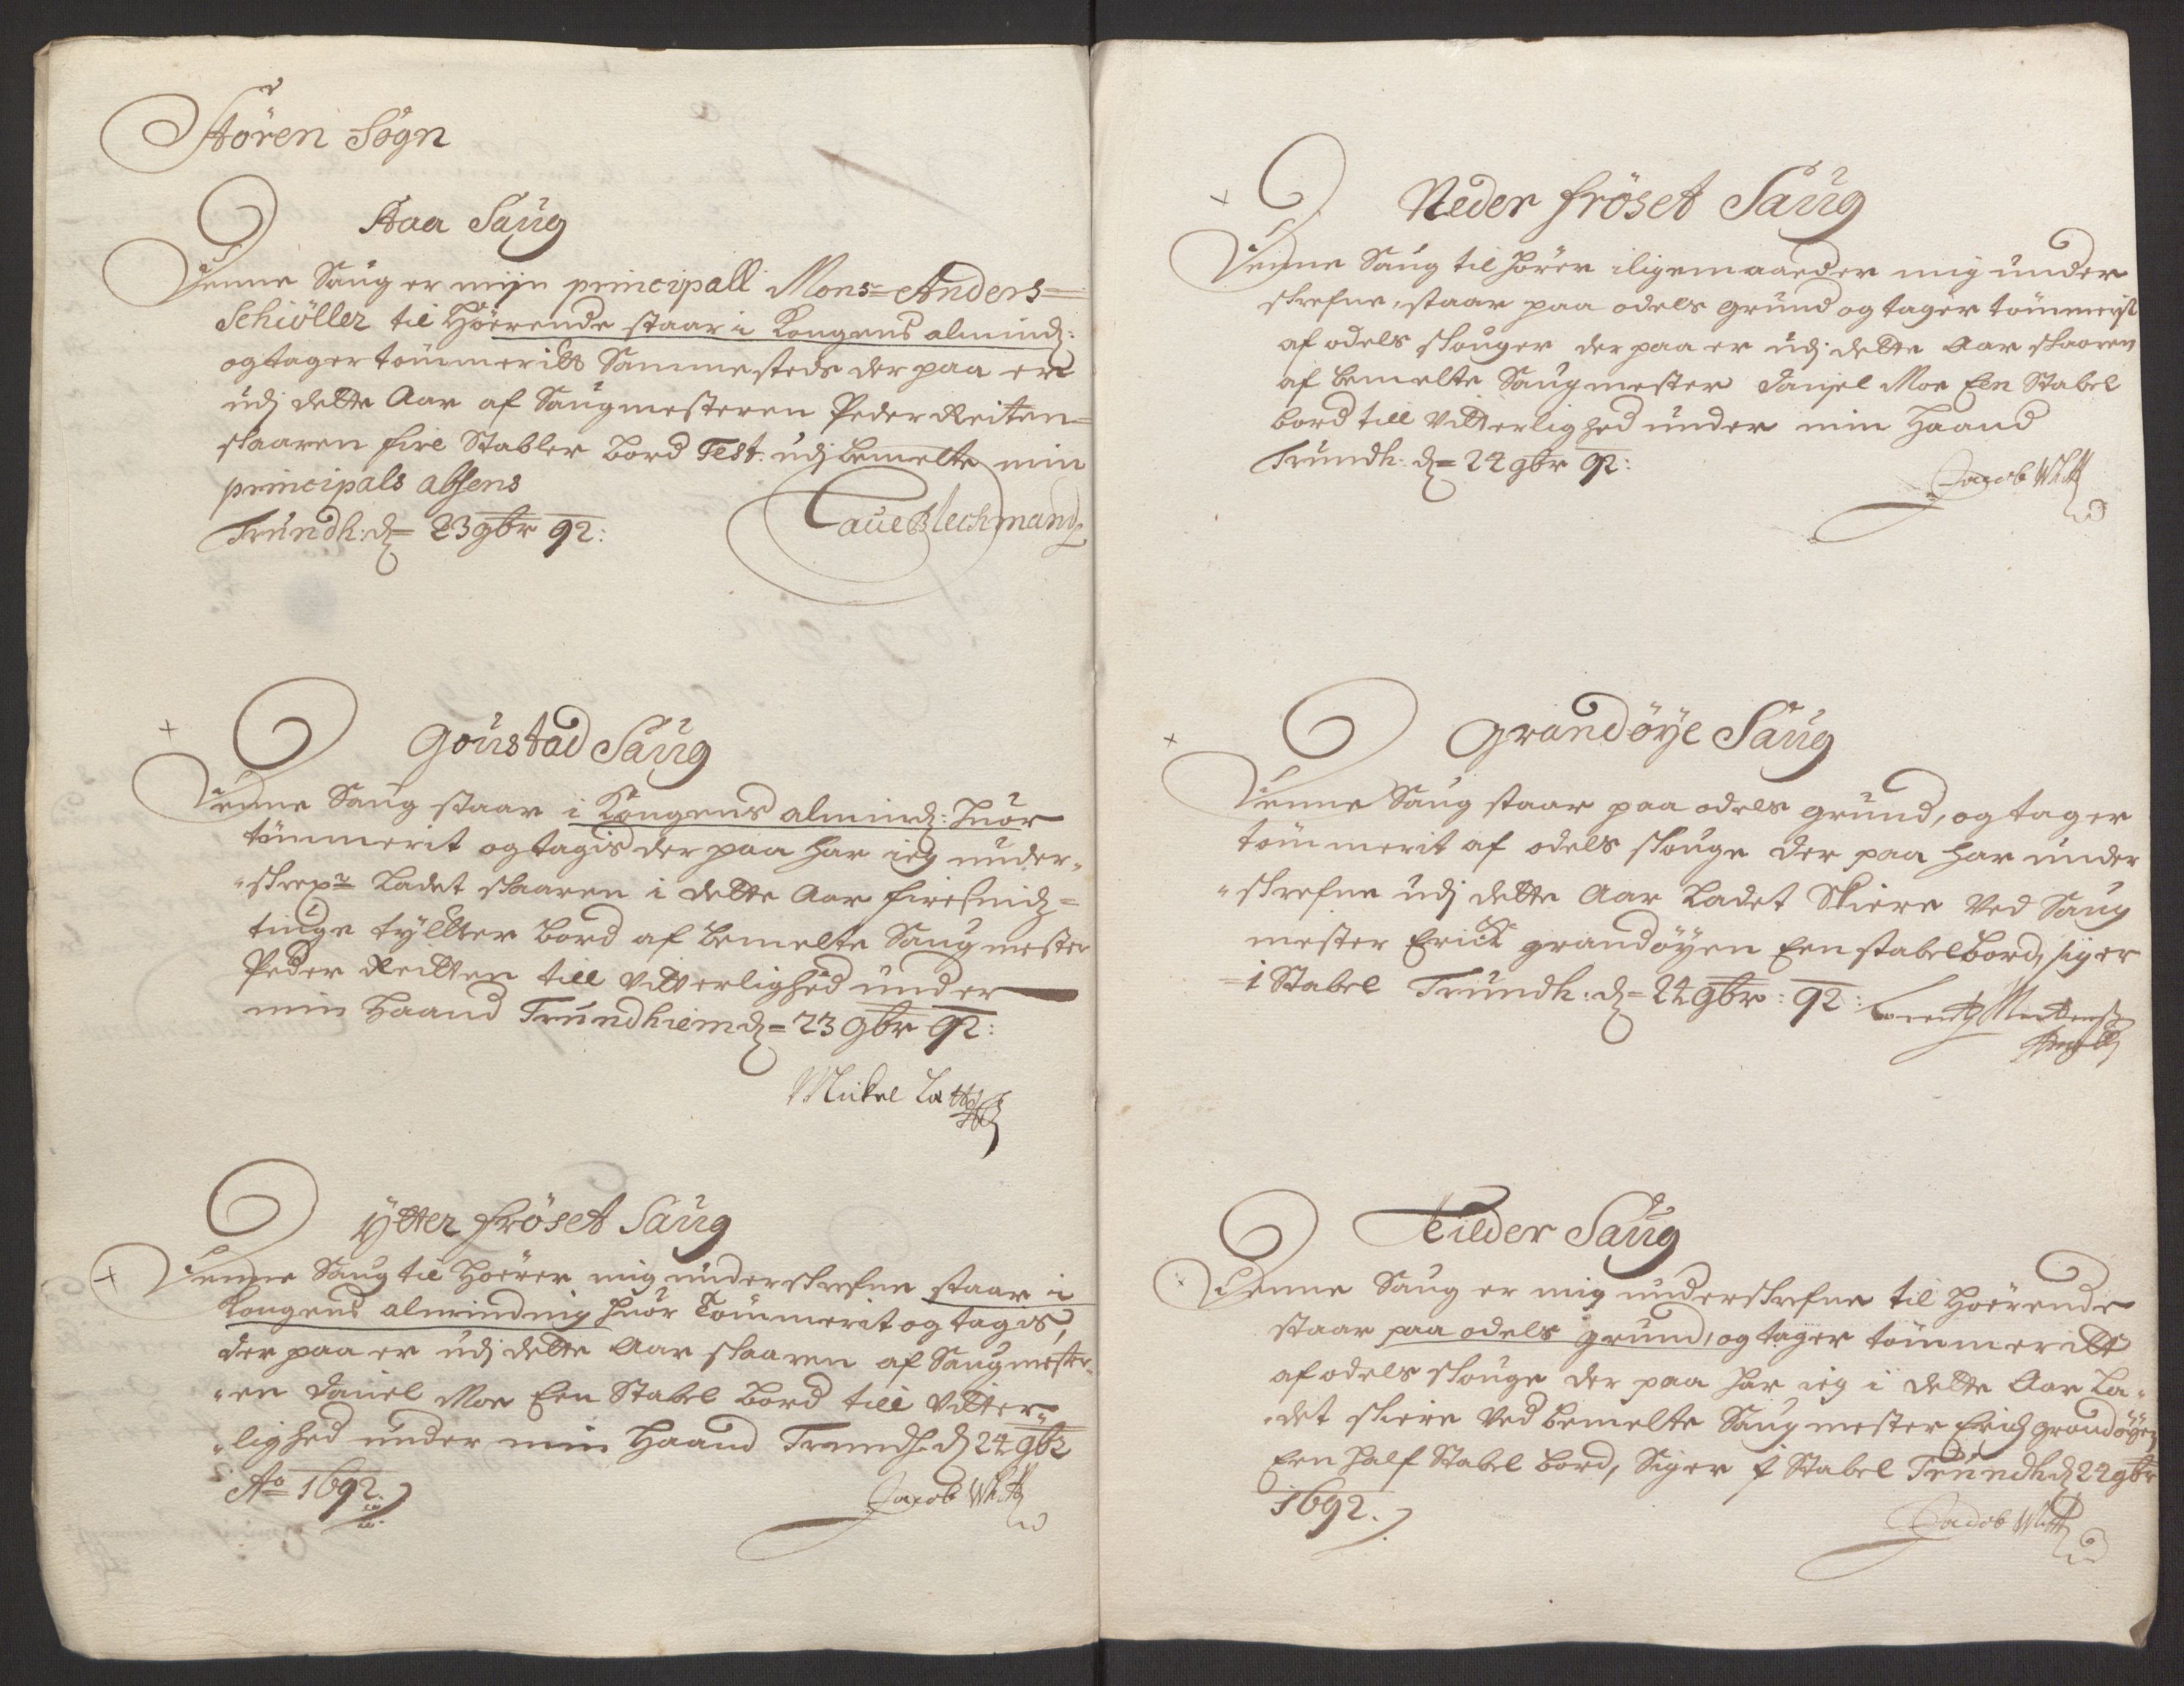 Støren Sogn
Aaa Saug
Denne Saug er mijn principall Mons:r Anders
Schiøller til Høerende staar i Kongens almind:
og tager tømmeritt Sammesteds der paa er
udj dette Aar af Saugmesteren Peder Reiten
skaaren fire Stabler bord Test: udj bemelte min
principals absens
Trundh: d= 23 9br 92:
Laue Blechmand
Goustad Saug
Denne Saug staar i Kongens almind: huor
tømmerit og tagis der paa har ieg under-
skrefne Ladet skaaren i dette Aar
tiuge tyllter bord af bemelte Saugmester
Peder Reitten till vitterlighed under
min Haand Trundhiem d= 23 9br 92:
Mickel
Ytter frøset Saug
Denne Saug til Hoerer mig underskrefne staar i
Kongens almindnig huor Tømmerit og tagis,
der paa er udj dette Aar skaaren af Saugmester-
"en Daniel Moe Een Stabel bord till vitter-
"lighed under min Haand Trundh: d 24 9br
Ao 1692.
Jacob
Neder frøset Saug
Denne Saug til hører iligemaader mig under
skrefne, staar paa odels grund og tager tømmerit
af odels skouger der paa er udj dette Aar skaaren
af bemelte Saugmester Daniel Moe Een Stabel
bord till vitterlighed under min Haand
Trundh: d= 24 9br 92:
Jacob
Grandøye Saug
Denne Saug staar paa odels grund, og tager
tømmerit af odels skouge der paa har under
"skrefne udj dette Aar Ladet Skiere Ved Saug
mester Erick grandøyen Een stabel bord, siger
=1 Stabel Trundh: d= 24 9br: 92:
Lorentz Mortensen
Angell
Teilder Saug
Denne Saug er mig underskrefne til Hoerende
staar paa odels grund, og tager tømmeritt
af odels skouge der paa har ieg i dette Aar La-
"det skiere Ved bemelte Saugmester Erich grandøyen
Een half Stabel bord, Siger ½ Stabel Trundh d 24 9br
1692.
Jacob